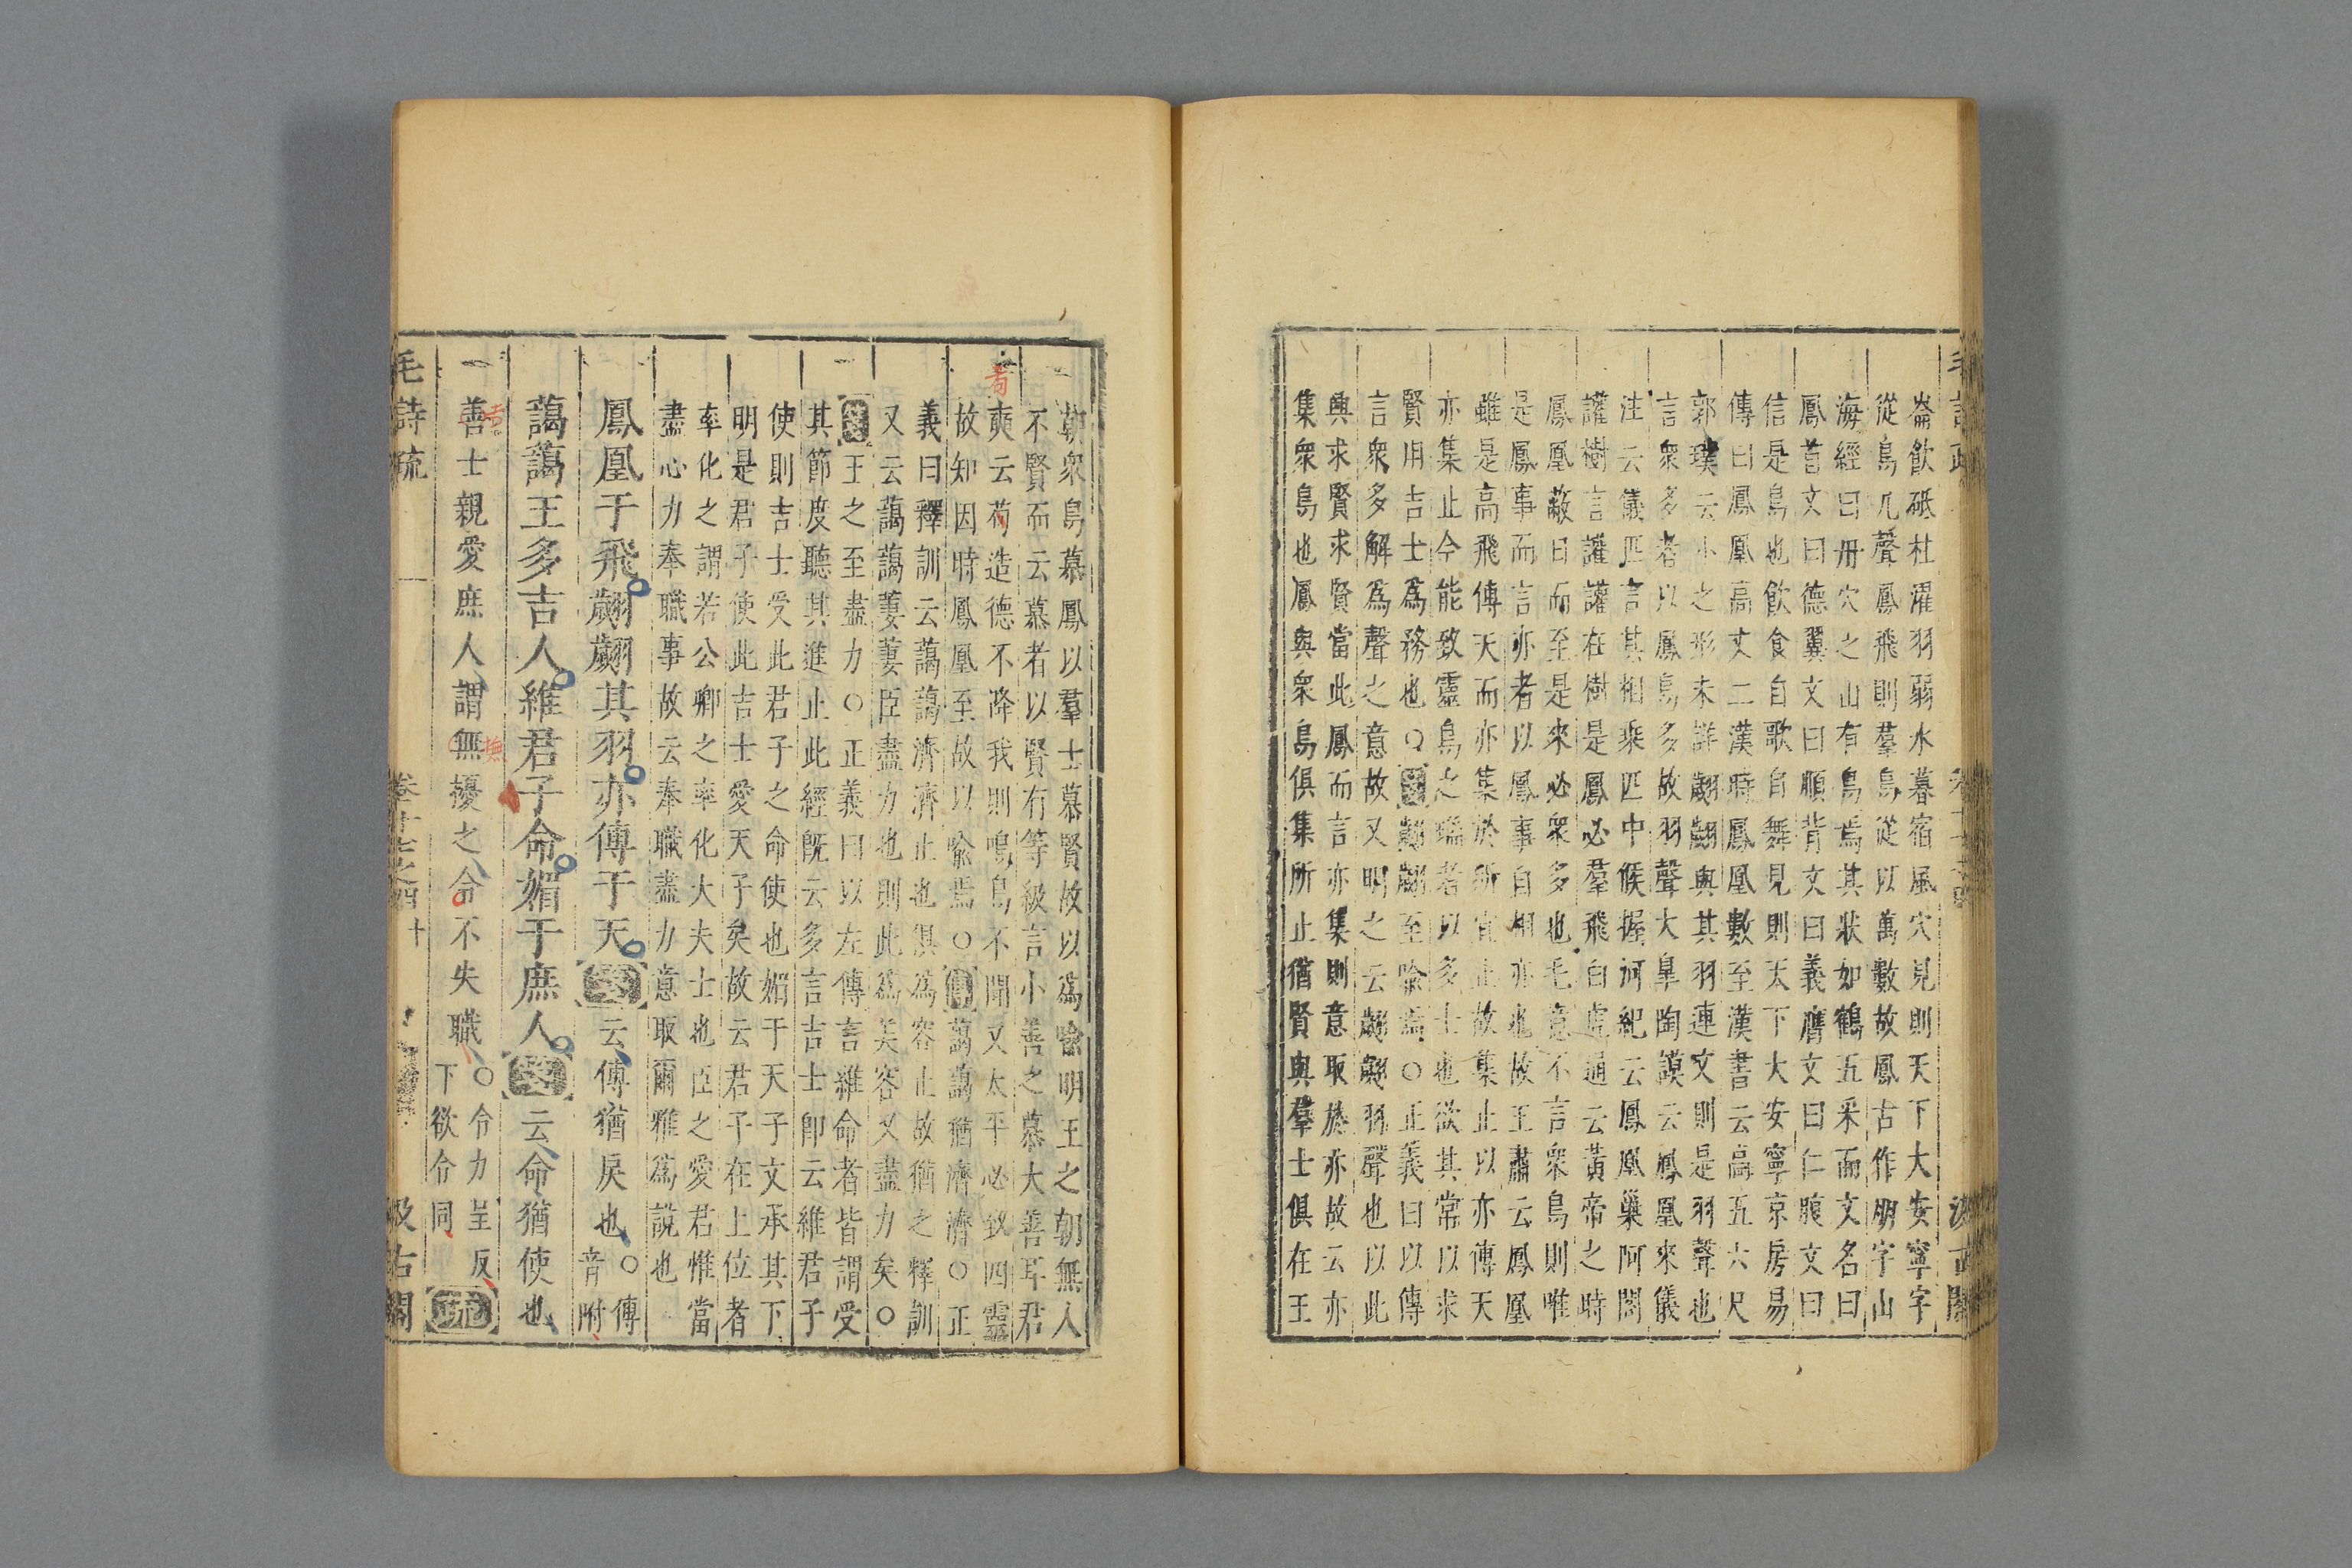 崙飲砥杜濯羽弱水暮宿風穴見則天下大安寧字
從鳥凡聲鳳飛則羣鳥從以萬數故鳳古作朋字山
海經曰丹穴之山有鳥焉其狀如鶴五采而文名曰
鳳首文曰德翼文曰順背文曰義膺文曰仁腹文曰
信是鳥也飲食自歌自舞見則天下大安寧京房易
傳曰鳳凰高丈二漢時鳳凰數至漢書云高五六尺
郭璞云小之形未詳翽翽與其羽連文則是羽聲也
言衆多者以鳳鳥多故羽聲大皐陶謨云鳳凰來儀
注云儀匹言其相乘匹中候握河紀云鳳凰巢阿閣
讙樹言讙讙在樹是鳳必羣飛白虎通云黃帝之時
鳳凰蔽日而至是來必衆多也毛意不言衆鳥則唯
是鳳事而言亦者以鳳事自相亦也故王肅云鳳凰
雖是高飛傅天而亦集於所宜止故集止以亦傅天
亦集止今能致靈鳥之瑞者以多士也欲其常以求
賢用吉士爲務也○翽翽至喻焉○正義曰以傳
言衆多解爲聲之意故又明之云翽翽羽聲也以此
興求賢求賢當此鳳而言亦集則意取於亦故云亦
集衆鳥也鳳與衆鳥俱集所止猶賢與羣士俱在王
朝衆鳥慕鳳以羣士慕賢故以爲喻明王之朝無人
不賢而云慕者以賢有等級言小善之慕大善耳君
奭云耇造德不降我則鳴鳥不聞又太平必致四靈
故知因時鳳凰至故以喻焉○藹藹猶濟濟○正
義曰釋訓云藹藹濟濟止也俱爲容止故猶之釋訓
又云藹藹萋萋臣盡力也則此爲美容又盡力矣○
王之至盡力○正義曰以左傳言維命者皆謂受
其節度聽其進止此經旣云多言吉士卽云維君子
使則吉士受此君子之命使也媚于天子文承其下
明是君子使此吉士愛天子矣故云君子在上位者
率化之謂若公卿之率化大夫士也臣之愛君惟當
盡心力奉職事故云奉職盡力意取爾雅爲說也
鳳凰于飛翽翽其羽亦傅于天云傅猶戾也○傅
音附
藹藹王多吉人維君子命媚于庶人云命猶使也
善士親愛庶人謂無擾之令不失職○令力呈反
下欲令同疏
毛詩疏 卷十七之四 十 汲古閣